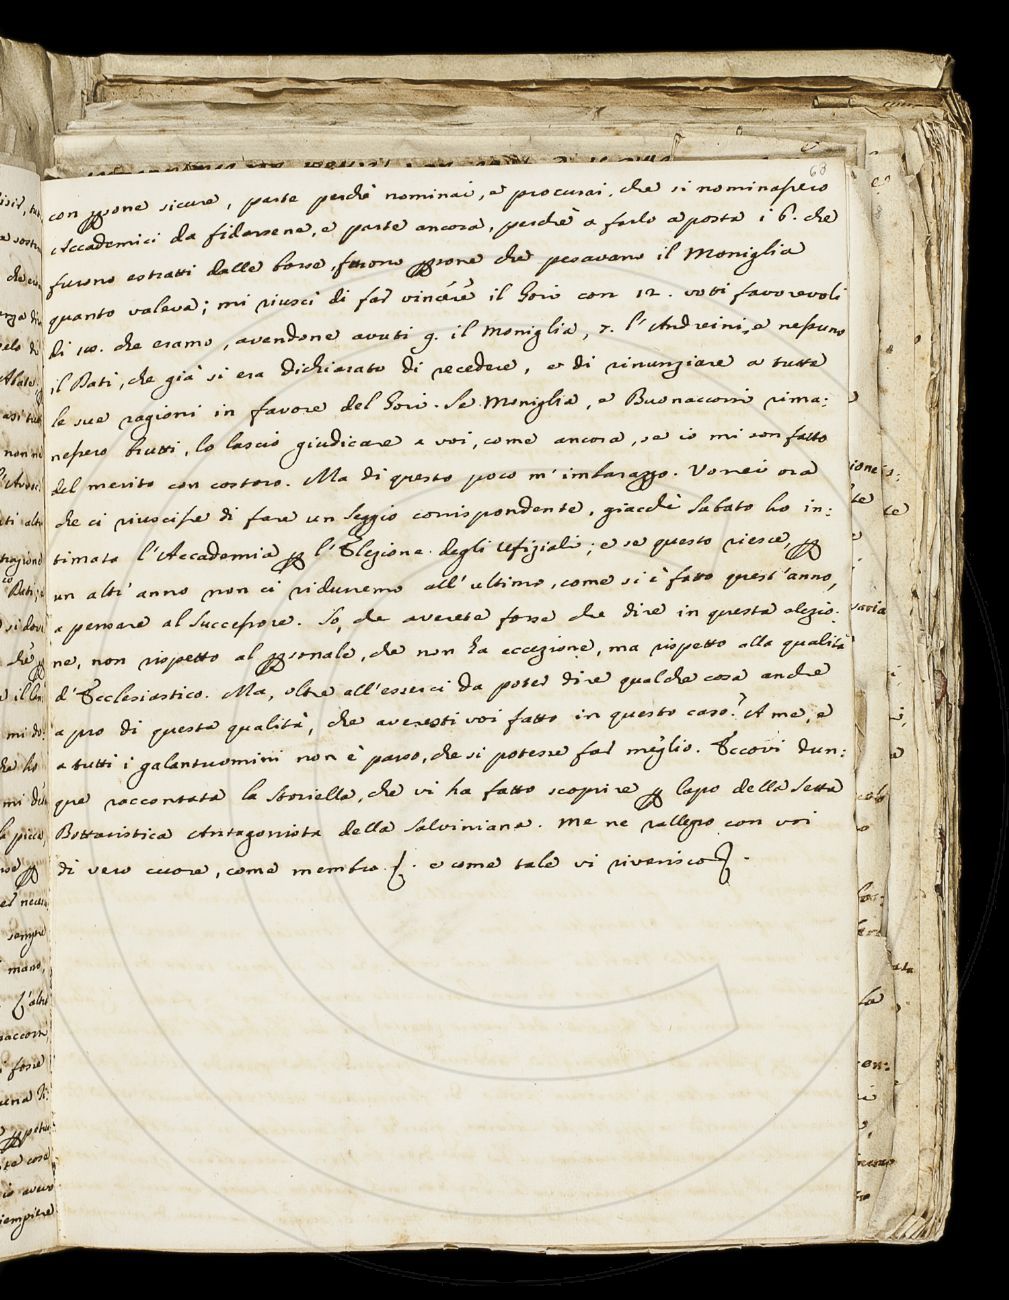 68
con persone sicure, parte perchè nominai, e procurai, che si nominassero
Accademici da fidarsene, e parte ancora, perchè a farlo a posta i 6. che
furono estratti dalle borse, furono persone che pesavano il Moniglia
quanto valeva; mi riuscì di far vincere il Gori con 12. voti favorevoli
di 10. che eramo, avendone avuti 9. il Moniglia, 7. l'Andreini, e nessuno
il Bati, che già si era dichiarato di recedere, e di rinunziare a tutte
le sue ragioni in favore del Gori. Se Moniglia, e Buonaccorsi rima:
nessero brutti, lo lascio giudicare a voi, come ancora, se io mi son fatto
del merito con costoro. Ma di questo poco m'imbarazzo. Vorrei ora
che ci riuscisse di fare un seggio corrispondente, giacchè sabato ho in:
timata l'Accademia per l'Elezione degli Ufiziali; e se questo riesce, per
un altr'anno non ci ridurremo all'ultimo, come si è fatto quest'anno,
a pensare al Successore. So, che averete forse che dire in questa elezio:
ne, non rispetto al personale, che non ha eccezione, ma rispetto alla qualità
d'Ecclesiastico. Ma, oltre all'esserci da poter dire qualche cosa anche
a pro di questa qualità, che avereste voi fatto in questo caso? A me, e
a tutti i galantuomini non è parso, che si potesse far meglio. Eccovi dun:
que raccontata la storiella, che vi ha fatto scoprire per lapo della Setta
Bottaristica Antagonista della Salviniana. Me ne rallegro con voi
di vero cuore, come membro. e come tale vi riverisco